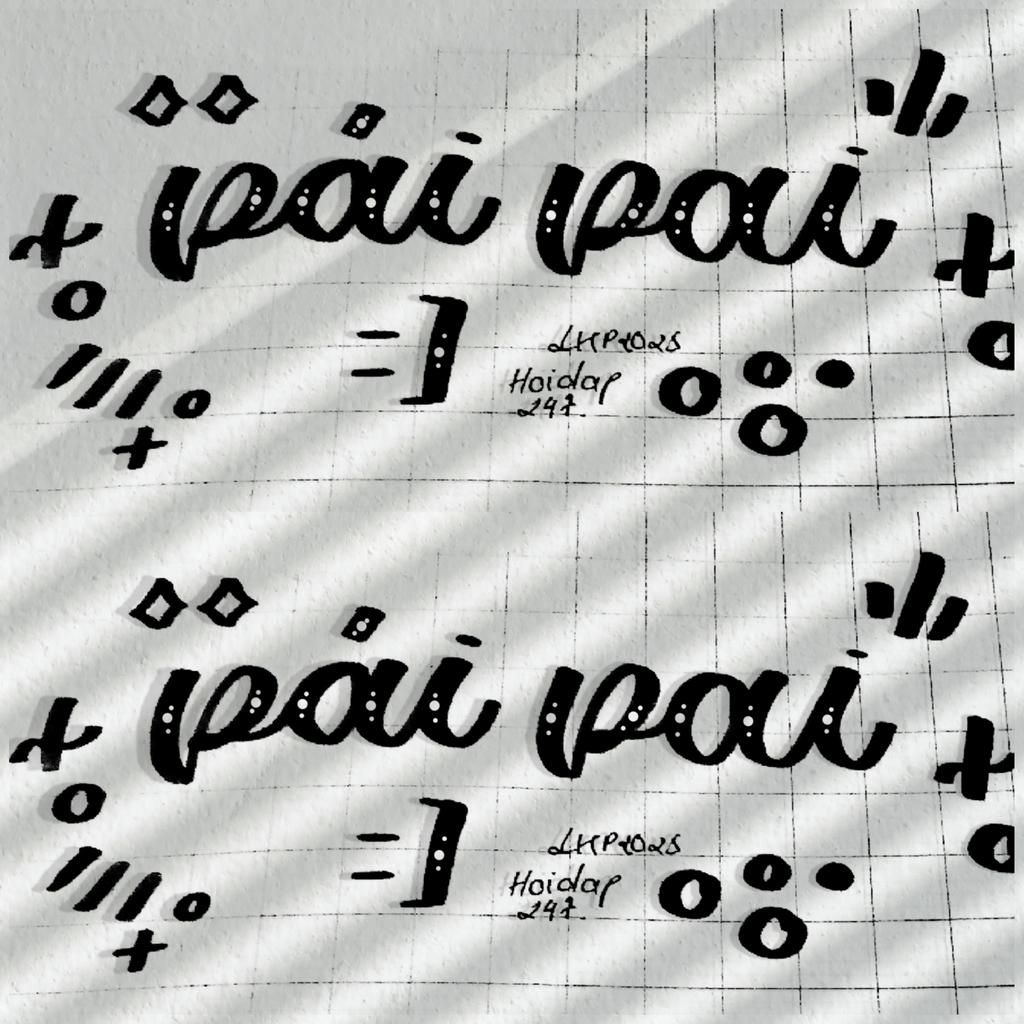 pái pai
=]
LHP2025
Hoidap
247.
pái pai
=]
LHP2025
Hoidap
247.